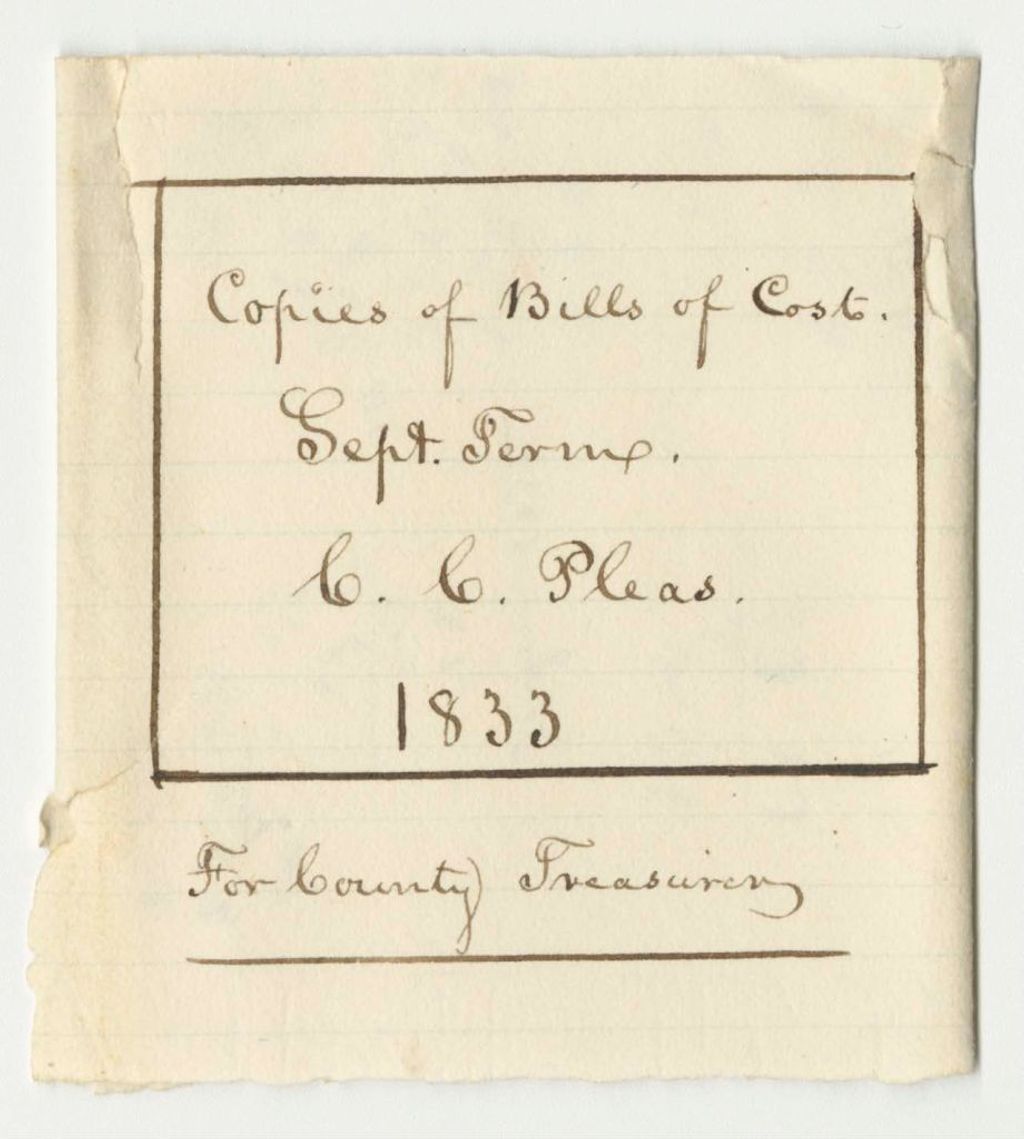 Copies of Bills of Cost.
Sept. Term.
C. C. Pleas.
1833
For County Treasurer